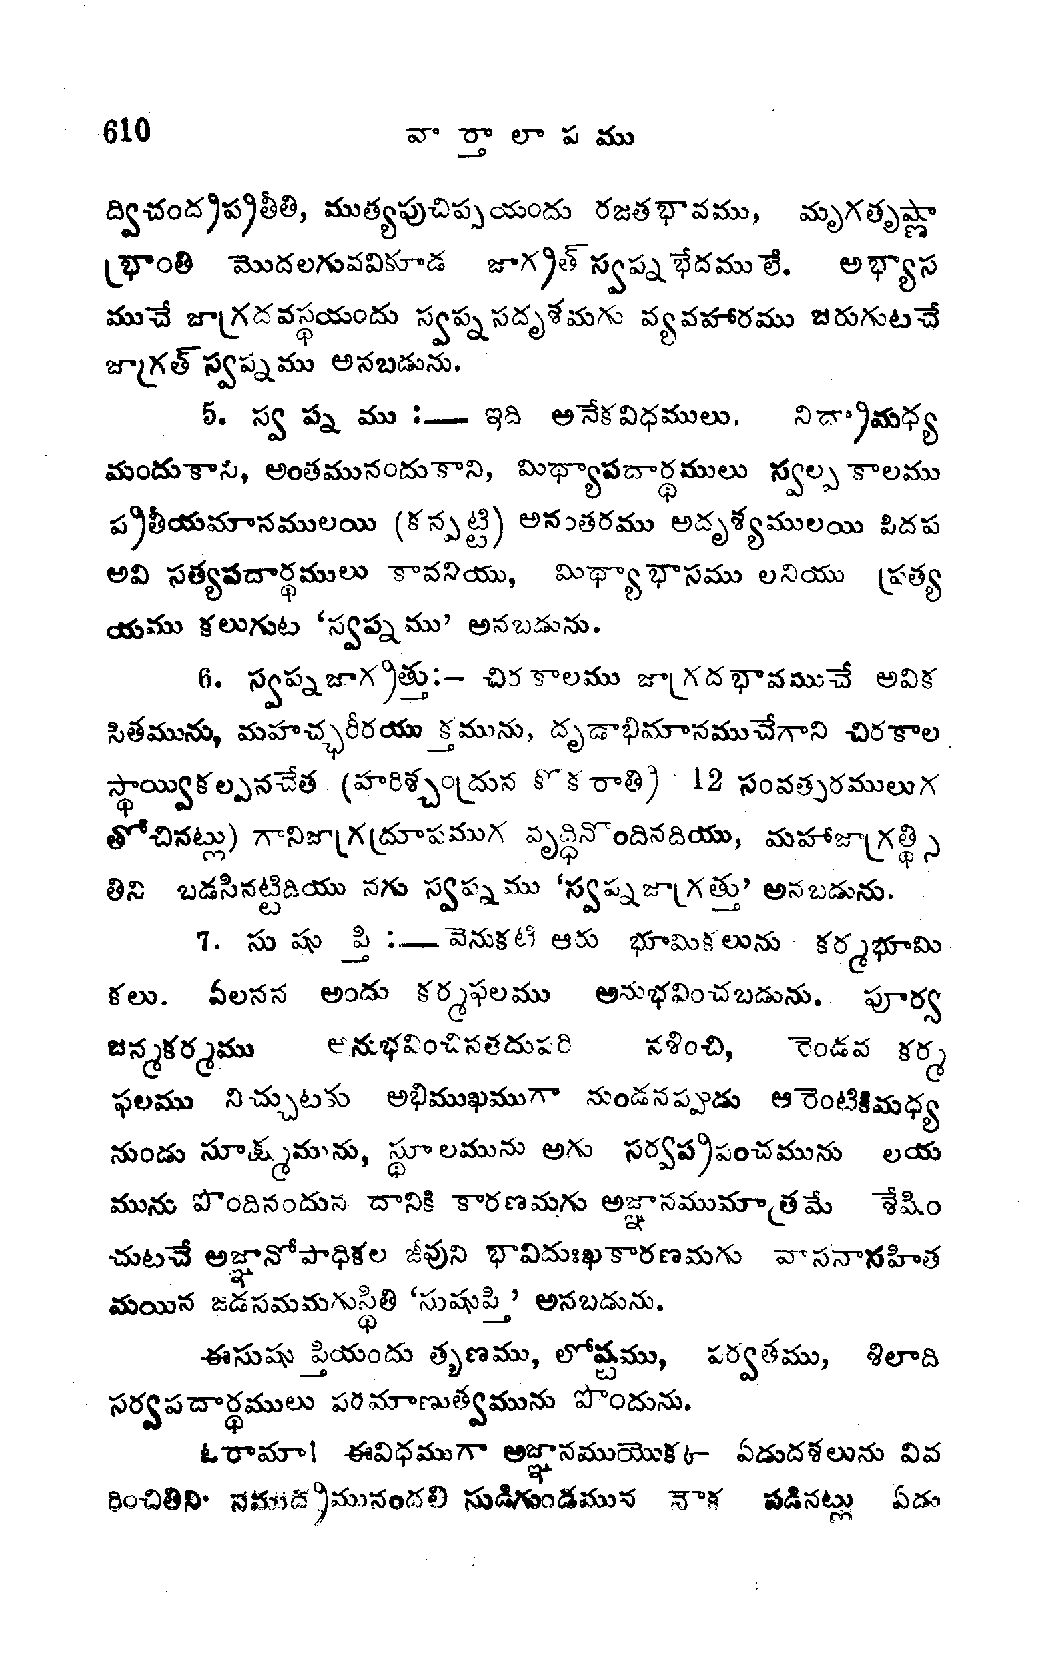 610
వా ర్తా లా ప ము
ద్విచంద్రప్రతీతి, ముత్యపుచిప్పయందు రజతభావము, మృగతృష్ణా
భ్రాంతి మొదలగునవికూడ జాగ్రత్ స్వప్న భేదములే. అభ్యాస
ముచే జాగ్రదవస్థయందు స్వప్న సదృశమగు వ్యవహారము జరుగుటచే
జాగ్రత్ స్వప్నము అనబడును.
5. స్వ ప్న ము :— ఇది అనేకవిధములు. నిద్రామధ్య
మందుకాని, అంతమునందుకాని, మిథ్యాపదార్థములు స్వల్ప కాలము
ప్రతీయమానములయి (కన్పట్టి) అనంతరము అదృశ్యములయి పిదప
అవి సత్యపదార్థములు కావనియు, మిథ్యా భాసము లనియు ప్రత్య
యము కలుగుట ‘స్వప్నము’ అనబడును.
6. స్వప్న జాగ్రత్తు:— చిర కాలము జాగ్రదభావముచే అవిక
సితమును, మహచ్ఛరీరయు క్తమును, దృఢాభిమానముచేగాని చిరకాల
స్థాయ్వికల్పనచేత (హరిశ్చంద్రున కొక రాత్రి 12 సంవత్సరములుగ
తోచినట్లు) గానిజాగ్రద్రూపముగ వృద్ధినొందినదియు, మహాజాగ్రత్స్థి
తిని బడసినట్టిదియు నగు స్వప్నము ‘స్వప్న జాగ్రత్తు’ అనబడును.
7. సు షు ప్తి :— వెనుకటి ఆరు భూమికలును కర్మభూమి
కలు. ఏలనన అందు కర్మఫలము అనుభవించబడును. పూర్వ
జన్మకర్మము అనుభవించినతదుపరి నశించి, రెండవ కర్మ
ఫలము నిచ్చుటకు అభిముఖముగా నుండనప్పుడు ఆ రెంటికిమధ్య
నుండు సూక్ష్మమును, స్థూలమును అగు సర్వప్రపంచమును లయ
మును పొందినందున దానికి కారణమగు అజ్ఞానముమాత్రమే శేషిం
చుటచే అజ్ఞానోపాధికల జీవుని భావిదుఃఖకారణమగు వాసనాసహిత
మయిన జడసమమగుస్థితి ‘సుషుప్తి’ అనబడును.
ఈసుషు ప్తియందు తృణము, లోష్టము, పర్వతము, శిలాది
సర్వపదార్థములు పరమాణుత్వమును పొందును.
ఓరామా! ఈవిధముగా అజ్ఞానముయొక్క ఏడుదశలును వివ
రించితిని. సముద్రమునందలి సుడిగుండమున నౌక పడినట్లు ఏడు